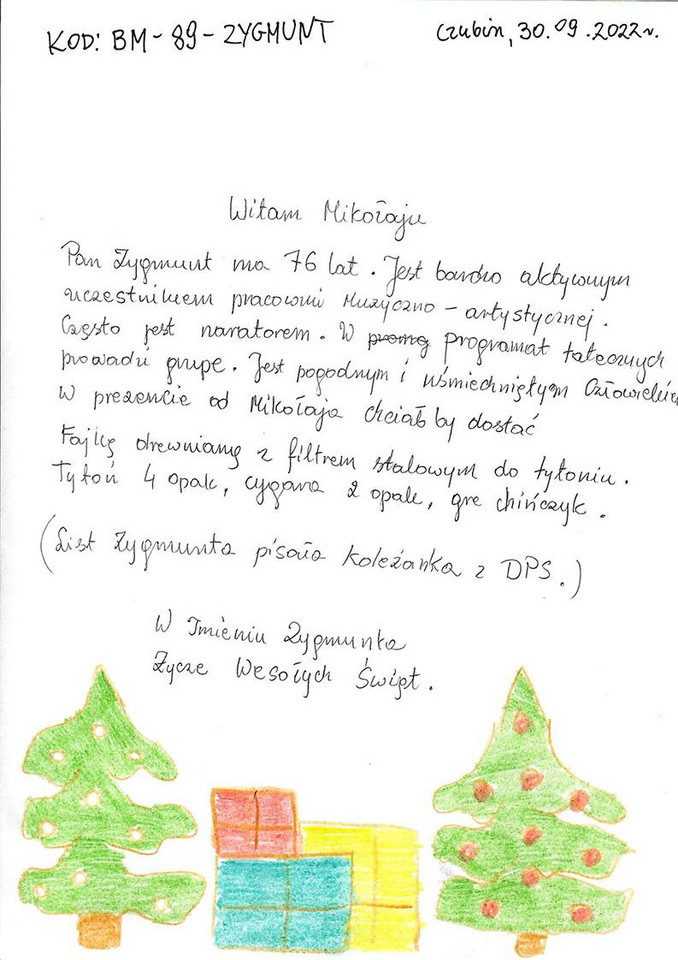 KOD: BM-89-ZYGMUNT
Czubin, 30.09.2022r.
Witam Mikołaju
Pan Zygmunt ma 76 lat. Jest bardzo aktywnym
uczestnikiem pracowni Muzyczno-artystycznej.
Często jest naratorem. W programat tatecznych
prowadzi grupe. Jest pogodnym i uśmiechniętym Człowiekiem
W prezencie od Mikołaja chciałby dostać
Fajkę drewnianą z filtrem stalowym do tytoniu.
Tytoń 4 opak, cygara 2 opak, gre chińczyk.
(List Zygmunta pisała koleżanka z DPS.)
W Imieniu Zygmunta
Życze Wesołych Świąt.